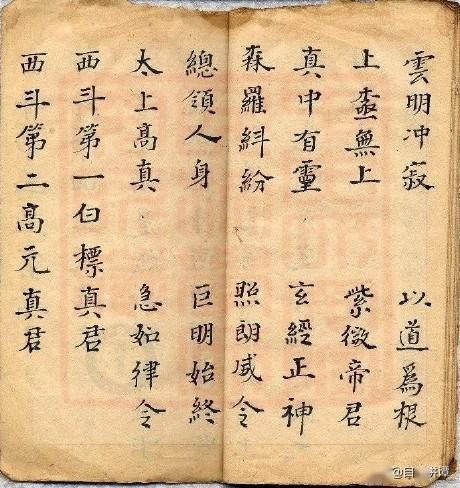 雲明冲寂 以道爲根
上無上 紫微帝君
真中有靈 玄經正神
森羅糾紛 照朗威令
總領人身 巨明始終
太上高真 急如律令
西斗第一白標真君
西斗第二高元真君
@自